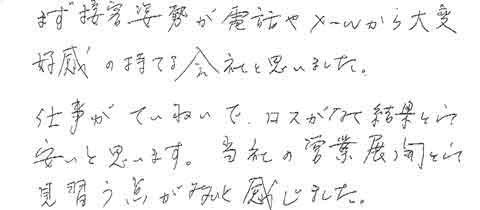 まず接客姿勢が電話やメールから大変
好感の持てる会社と思いました。
仕事がていねいで、ロスがなく結果として
安いと思います。当社の営業展開として
見習う点が多いと感じました。